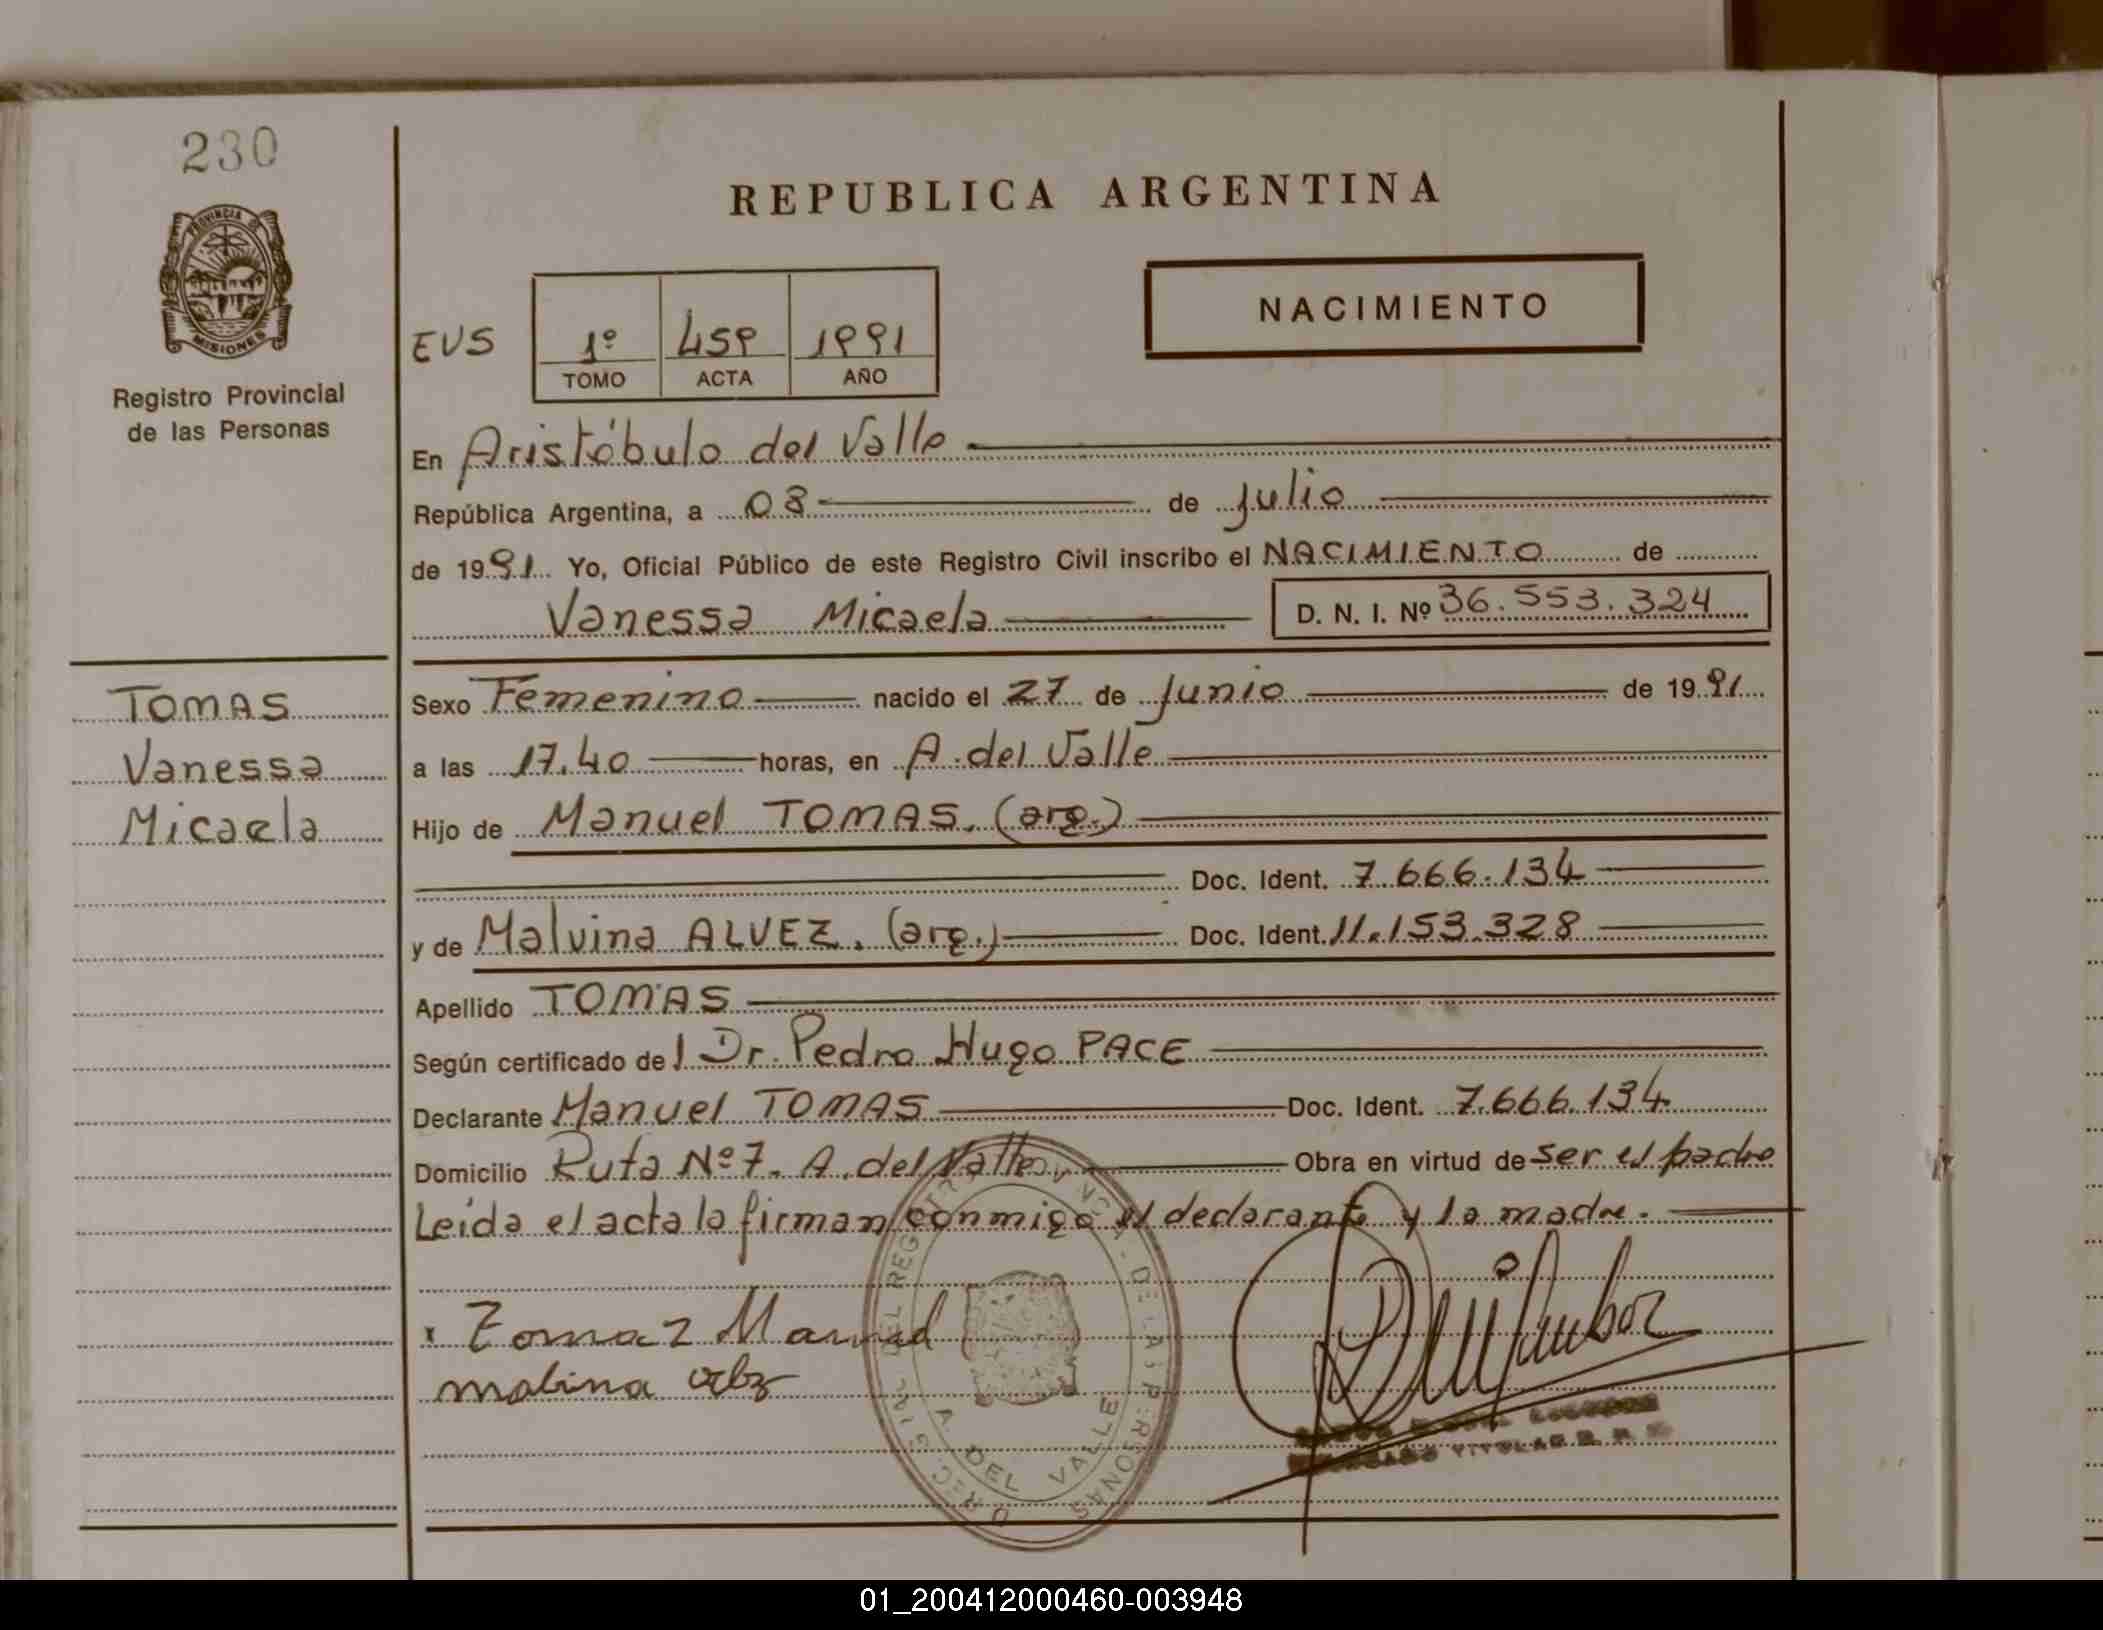 230
PROVINCIA DE
MISIONES
Registro Provincial
de las Personas
REPUBLICA ARGENTINA
NACIMIENTO
EVS
1º 459 1991
TOMO ACTA AÑO
En Aristóbulo del Valle
República Argentina, a 08 de Julio
de 1991 Yo, Oficial Público de este Registro Civil inscribo el NACIMIENTO de
Vanessa Micaela D. N. I. Nº 36.553.324
TOMAS
Vanessa
Micaela
Sexo Femenino nacido el 27 de Junio de 1991
a las 17.40 horas, en A. del Valle
Hijo de Manuel TOMAS. (arg.)
Doc. Ident. 7.666.134
y de Malvina ALVEZ. (arg.) Doc. Ident. 11.153.328
Apellido TOMAS
Según certificado del Dr. Pedro Hugo PACE
Declarante Manuel TOMAS Doc. Ident. 7.666.134
Domicilio Ruta Nº 7. A. del Valle Obra en virtud de ser el padre
Leída el acta la firman conmigo el declarante y la madre.
x Tomaz Manuel
malvina
A. DEL VALLE
DE LAS PERSONAS
TITULAR
01_200412000460-003948